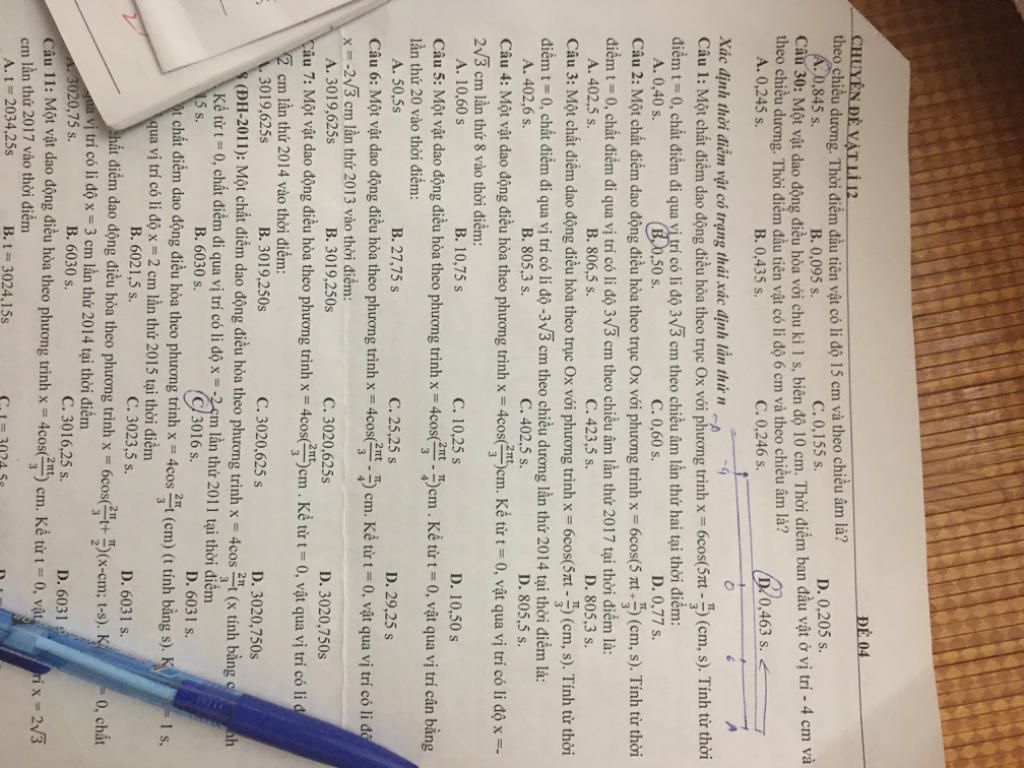 CHUYÊN ĐỀ VẬT LÍ 12 ĐỀ 04
theo chiều dương. Thời điểm đầu tiên vật có li độ 15 cm và theo chiều âm là?
A. 0,845 s. B. 0,095 s. C. 0,155 s. D. 0,205 s.
Câu 30: Một vật dao động điều hòa với chu kì 1 s, biên độ 10 cm. Thời điểm ban đầu vật ở vị trí - 4 cm và
theo chiều dương. Thời điểm đầu tiên vật có li độ 6 cm và theo chiều âm là?
A. 0,245 s. B. 0,435 s. C. 0,246 s. D. 0,463 s.
-A -4 0 6 A
Xác định thời điểm vật có trạng thái xác định lần thứ n
Câu 1: Một chất điểm dao động điều hòa theo trục Ox với phương trình x = 6cos(5πt - π/3) (cm, s). Tính từ thời
điểm t = 0, chất điểm đi qua vị trí có li độ 3√3 cm theo chiều âm lần thứ hai tại thời điểm:
A. 0,40 s. B. 0,50 s. C. 0,60 s. D. 0,77 s.
Câu 2: Một chất điểm dao động điều hòa theo trục Ox với phương trình x = 6cos(5 πt + π/3) (cm, s). Tính từ thời
điểm t = 0, chất điểm đi qua vị trí có li độ 3√3 cm theo chiều âm lần thứ 2017 tại thời điểm là:
A. 402,5 s. B. 806,5 s. C. 423,5 s. D. 805,3 s.
Câu 3: Một chất điểm dao động điều hòa theo trục Ox với phương trình x = 6cos(5πt - π/3) (cm, s). Tính từ thời
điểm t = 0, chất điểm đi qua vị trí có li độ -3√3 cm theo chiều dương lần thứ 2014 tại thời điểm là:
A. 402,6 s. B. 805,3 s. C. 402,5 s. D. 805,5 s.
Câu 4: Một vật dao động điều hòa theo phương trình x = 4cos(2πt/3)cm. Kể từ t = 0, vật qua vị trí có li độ x =-
2√3 cm lần thứ 8 vào thời điểm:
A. 10,60 s B. 10,75 s C. 10,25 s D. 10,50 s
Câu 5: Một vật dao động điều hòa theo phương trình x = 4cos(2πt/3 - π/4)cm . Kể từ t = 0, vật qua vị trí cân bằng
lần thứ 20 vào thời điểm:
A. 50,5s B. 27,75 s C. 25,25 s D. 29,25 s
Câu 6: Một vật dao động điều hòa theo phương trình x = 4cos(2πt/3 - π/4) cm. Kể từ t = 0, vật qua vị trí có li độ
x = -2√3 cm lần thứ 2013 vào thời điểm:
A. 3019,625s B. 3019,250s C. 3020,625s D. 3020,750s
Câu 7: Một vật dao động điều hòa theo phương trình x = 4cos(2πt/3)cm . Kể từ t = 0, vật qua vị trí có li
√2 cm lần thứ 2014 vào thời điểm:
3019,625s B. 3019,250s C. 3020,625 s D. 3020,750s
8 (ĐH-2011): Một chất điểm dao động điều hòa theo phương trình x = 4cos 2π/3 t (x tính bằng
Kể từ t = 0, chất điểm đi qua vị trí có li độ x = -2 cm lần thứ 2011 tại thời điểm
15 s. B. 6030 s. C. 3016 s. D. 6031 s.
chất điểm dao động điều hòa theo phương trình x = 4cos 2π/3 t (cm) (t tính bằng s).
qua vị trí có li độ x = 2 cm lần thứ 2015 tại thời điểm
B. 6021,5 s. C. 3023,5 s. D. 6031 s.
chất điểm dao động điều hòa theo phương trình x = 6cos(2π/3 t+ π/2)(x-cm; t-s). = 0, chất
qua vị trí có li độ x = 3 cm lần thứ 2014 tại thời điểm
A. 3020,75 s. B. 6030 s. C. 3016,25 s. D. 6031
Câu 11: Một vật dao động điều hòa theo phương trình x = 4cos(2πt/3) cm. Kể từ t = 0, vật x = 2√3
cm lần thứ 2017 vào thời điểm
A. t = 2034,25s B. t = 3024,15s